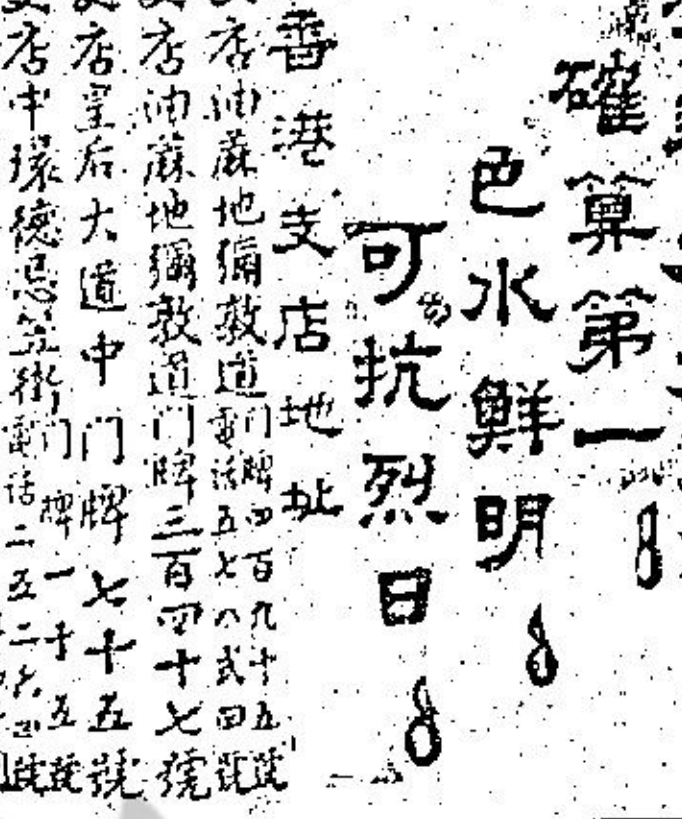 確算第一
色水鮮明
可抗烈日
香港支店地址
支店油蔴地彌敦道門牌四百九十五號
電話五七八弍四號
支店油蔴地彌敦道門牌三百四十七號
支店皇后大道中門牌七十五號
支店中環德忌笠街門牌一十五號
電話二五二六四號